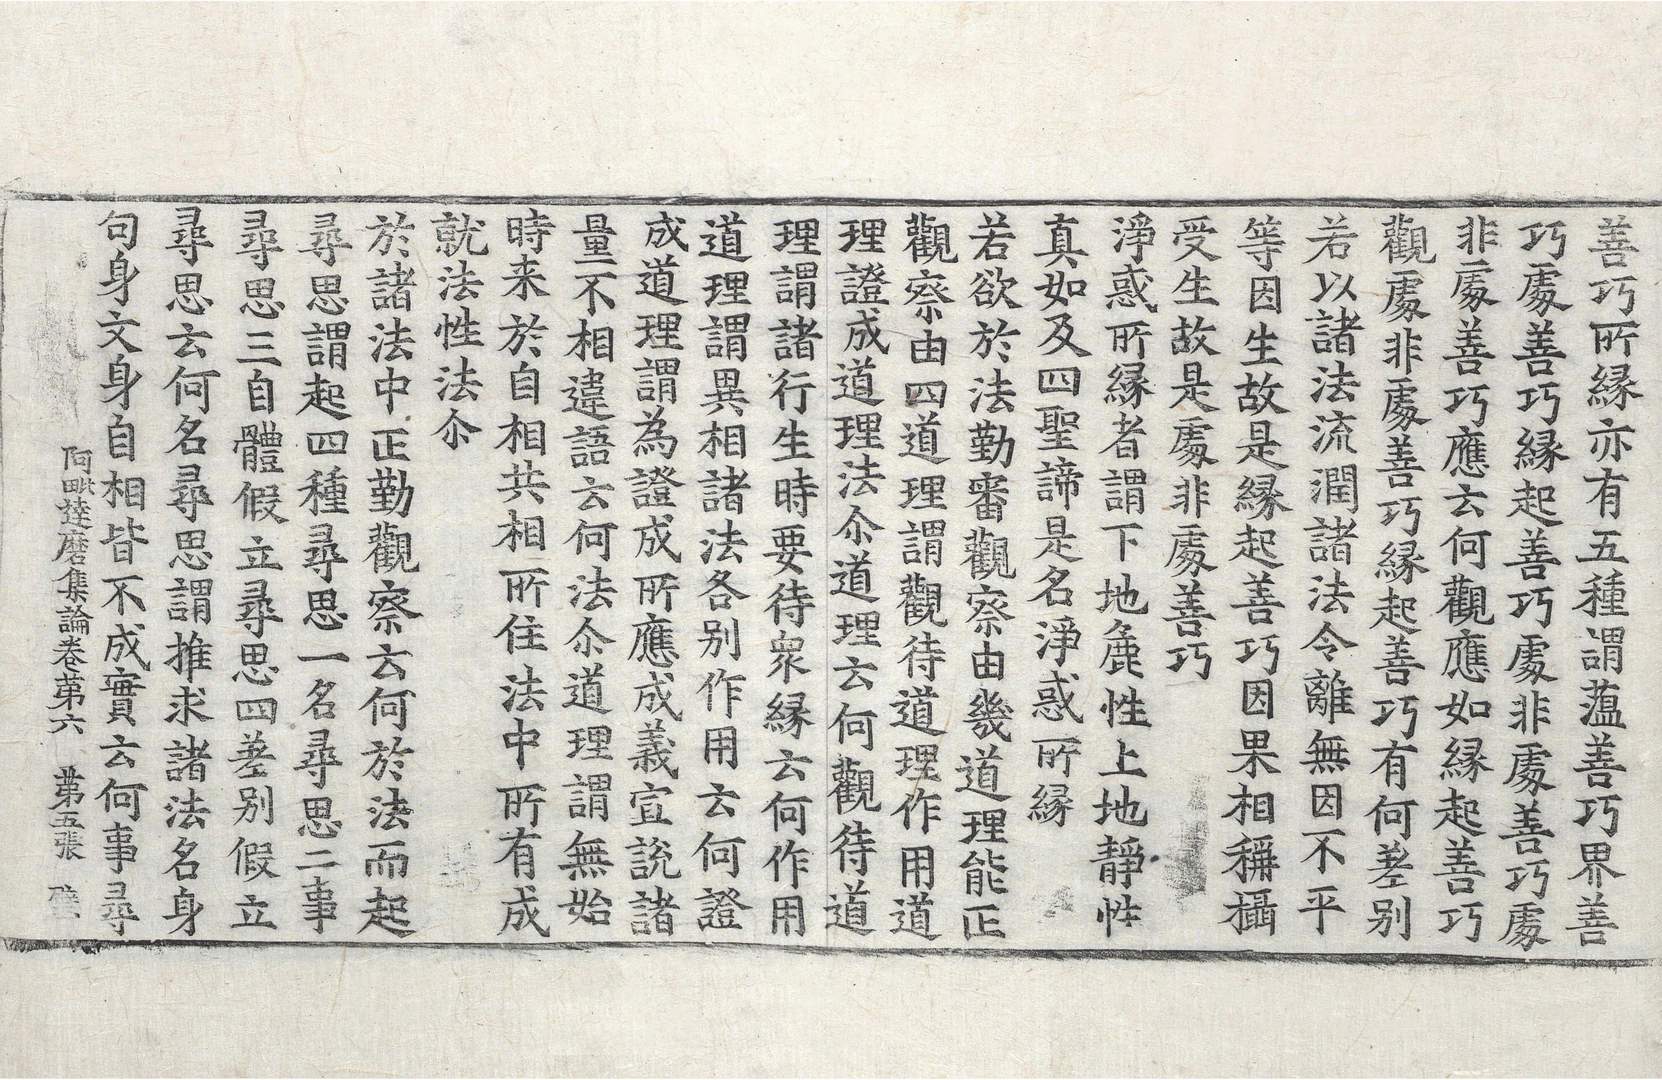 善巧所緣亦有五種謂蘊善巧界善
巧處善巧緣起善巧處非處善巧處
非處善巧應云何觀應如緣起善巧
觀處非處善巧緣起善巧有何差別
若以諸法流潤諸法令離無因不平
等因生故是緣起善巧因果相稱攝
受生故是處非處善巧
淨惑所緣者謂下地麁性上地靜性
真如及四聖諦是名淨惑所緣
若欲於法勤審觀察由幾道理能正
觀察由四道理謂觀待道理作用道
理證成道理法尒道理云何觀待道
理謂諸行生時要待衆緣云何作用
道理謂異相諸法各別作用云何證
成道理謂為證成所應成義宣說諸
量不相違語云何法尒道理謂無始
時来於自相共相所住法中所有成
就法性法尒
於諸法中正勤觀察云何於法而起
尋思謂起四種尋思一名尋思二事
尋思三自體假立尋思四差別假立
尋思云何名尋思謂推求諸法名身
句身文身自相皆不成實云何事尋
阿毗達磨集論卷第六 第五張